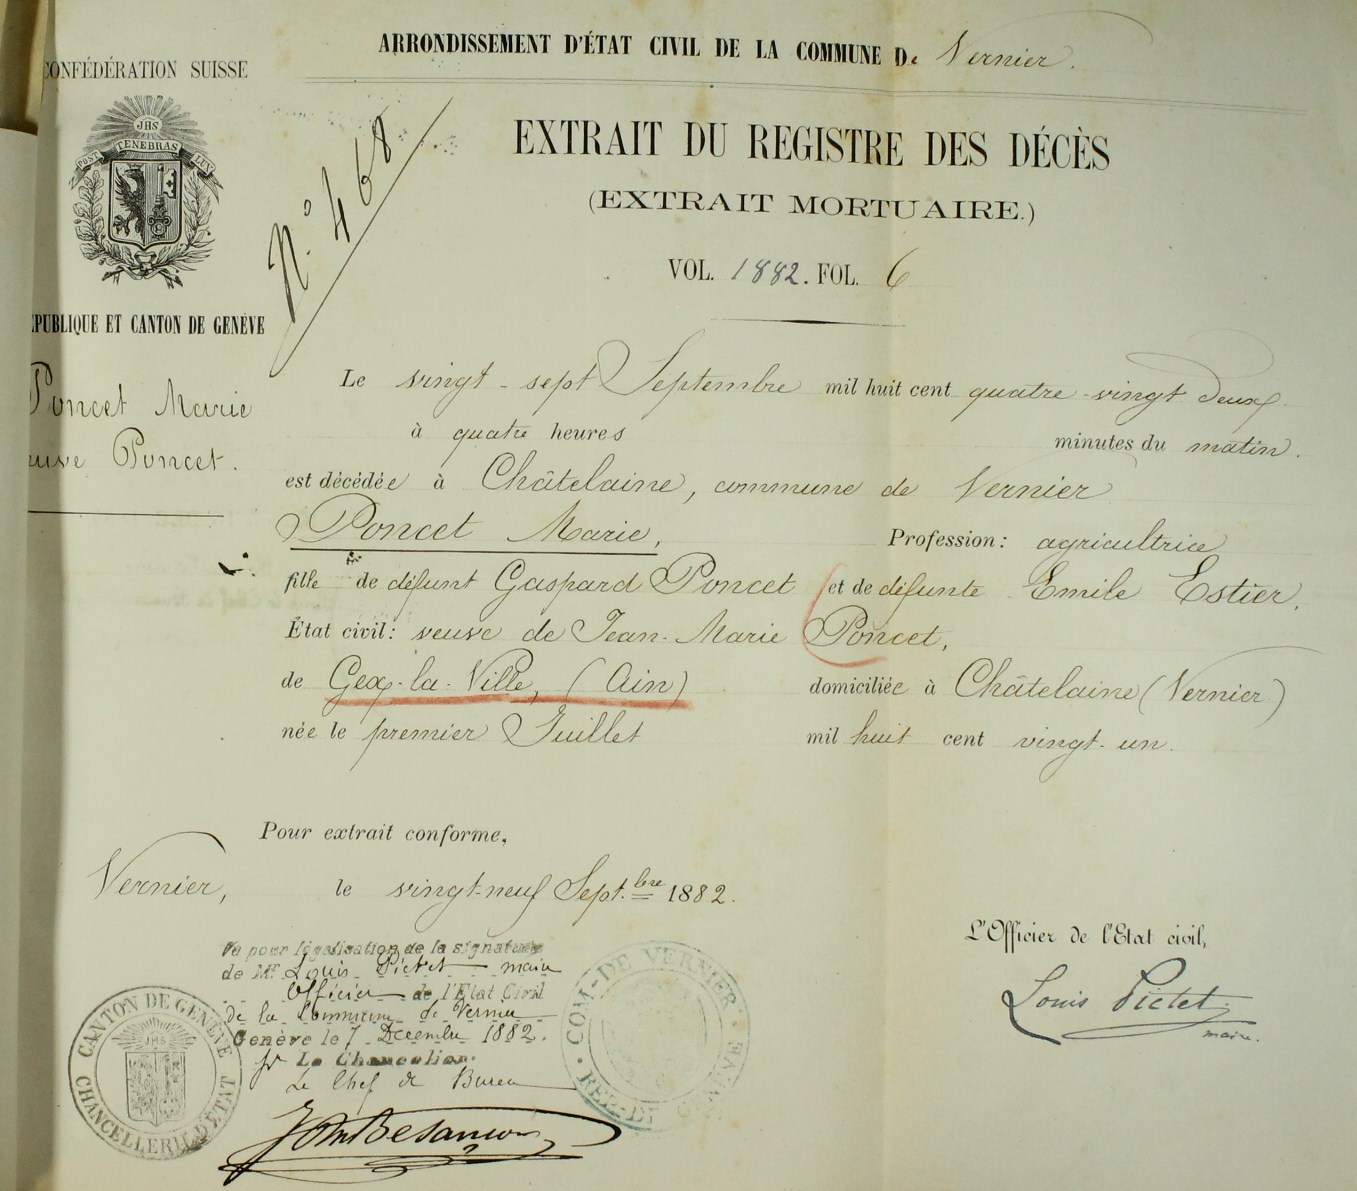 ARRONDISSEMENT D'ÉTAT CIVIL DE LA COMMUNE De Vernier.
CONFÉDÉRATION SUISSE
JHS
POST TENEBRAS LUX
N.º 468
EXTRAIT DU REGISTRE DES DÉCÈS
(EXTRAIT MORTUAIRE.)
VOL. 1882. FOL. 6
ÉPUBLIQUE ET CANTON DE GENÈVE
Poncet Marie
euve Poncet.
Le vingt-sept Septembre mil huit cent quatre-vingt deux
à quatre heures minutes du matin.
est décédée à Châtelaine, commune de Vernier
Poncet Marie, Profession: agricultrice
fille de défunt Gaspard Poncet et de défunte Emile Estier,
État civil: veuve de Jean-Marie Poncet,
de Gex-la-Ville, (Ain) domiciliée à Châtelaine (Vernier)
née le premier Juillet mil huit cent vingt-un.
Pour extrait conforme,
Vernier, le vingt-neuf Sept.bre 1882.
L'Officier de l'Etat civil,
Louis Pictet
maire.
Vu pour légalisation de la signature
de Mr Louis Pictet maire
Officier de l'Etat Civil
de la Commune de Vernier
Genève le 7 Décembre 1882.
pr Le Chancelier.
Le Chef de Bureau
John Besançon
CANTON DE GENÈVE
CHANCELLERIE D'ÉTAT
JHS
COM. DE VERNIER
REP. DE GENÈVE